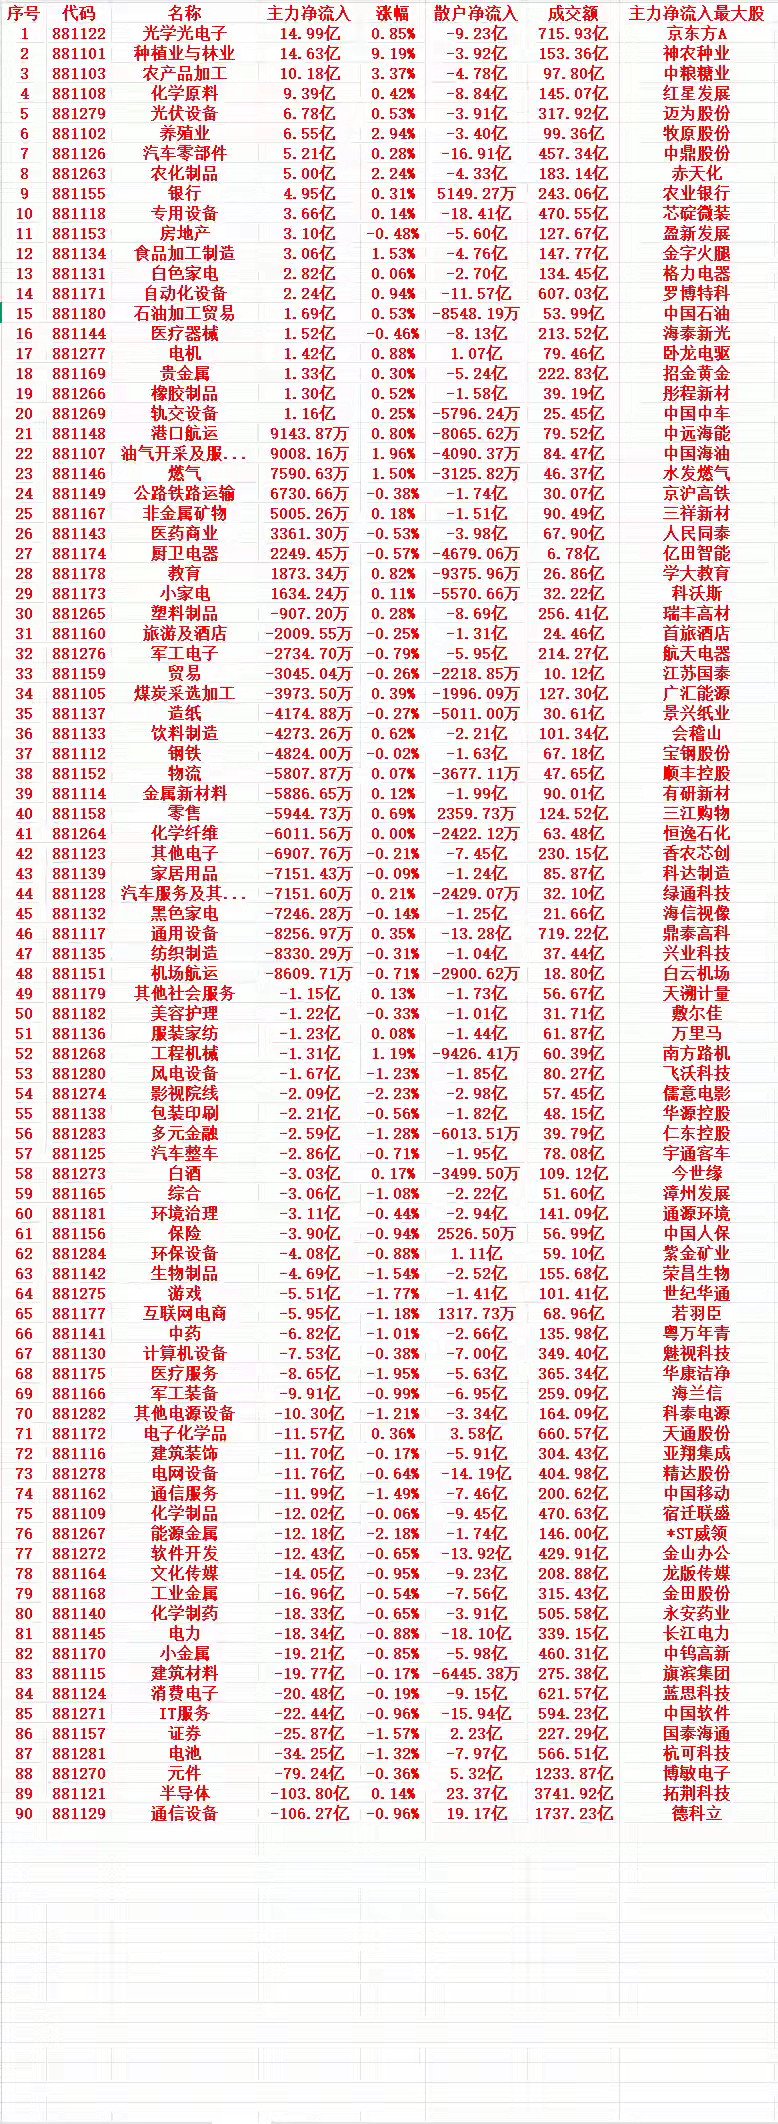 序号 代码 名称 主力净流入 涨幅 散户净流入 成交额 主力净流入最大股
1 881122 光学光电子 14.99亿 0.85% -9.23亿 715.93亿 京东方A
2 881101 种植业与林业 14.63亿 9.19% -3.92亿 153.36亿 神农种业
3 881103 农产品加工 10.18亿 3.37% -4.78亿 97.80亿 中粮糖业
4 881108 化学原料 9.39亿 0.42% -8.84亿 145.07亿 红星发展
5 881279 光伏设备 6.78亿 0.53% -3.91亿 317.92亿 迈为股份
6 881102 养殖业 6.55亿 2.94% -3.40亿 99.36亿 牧原股份
7 881126 汽车零部件 5.21亿 0.28% -16.91亿 457.34亿 中鼎股份
8 881263 农化制品 5.00亿 2.24% -4.33亿 183.14亿 赤天化
9 881155 银行 4.95亿 0.31% 5149.27万 243.06亿 农业银行
10 881118 专用设备 3.66亿 0.14% -18.41亿 470.55亿 芯碇微装
11 881153 房地产 3.10亿 -0.48% -5.60亿 127.67亿 盈新发展
12 881134 食品加工制造 3.06亿 1.53% -4.76亿 147.77亿 金字火腿
13 881131 白色家电 2.82亿 0.06% -2.70亿 134.45亿 格力电器
14 881171 自动化设备 2.24亿 0.94% -11.57亿 607.03亿 罗博特科
15 881180 石油加工贸易 1.69亿 0.53% -8548.19万 53.99亿 中国石油
16 881144 医疗器械 1.52亿 -0.46% -8.13亿 213.52亿 海泰新光
17 881277 电机 1.42亿 0.88% 1.07亿 79.46亿 卧龙电驱
18 881169 贵金属 1.33亿 0.30% -5.24亿 222.83亿 招金黄金
19 881266 橡胶制品 1.30亿 0.52% -1.58亿 39.19亿 彤程新材
20 881269 轨交设备 1.16亿 0.25% -5796.24万 25.45亿 中国中车
21 881148 港口航运 9143.87万 0.80% -8065.62万 79.52亿 中远海能
22 881107 油气开采及服... 9008.16万 1.96% -4090.37万 84.47亿 中国海油
23 881146 燃气 7590.63万 1.50% -3125.82万 46.37亿 水发燃气
24 881149 公路铁路运输 6730.66万 -0.38% -1.74亿 30.07亿 京沪高铁
25 881167 非金属矿物 5005.26万 0.18% -1.51亿 90.49亿 三祥新材
26 881143 医药商业 3361.30万 -0.53% -3.98亿 67.90亿 人民同泰
27 881174 厨卫电器 2249.45万 -0.57% -4679.06万 6.78亿 亿田智能
28 881178 教育 1873.34万 0.82% -9375.96万 26.86亿 学大教育
29 881173 小家电 1634.24万 0.11% -5570.66万 32.22亿 科沃斯
30 881265 塑料制品 -907.20万 0.28% -8.69亿 256.41亿 瑞丰高材
31 881160 旅游及酒店 -2009.55万 -0.25% -1.31亿 24.46亿 首旅酒店
32 881276 军工电子 -2734.70万 -0.79% -5.95亿 214.27亿 航天电器
33 881159 贸易 -3045.04万 -0.26% -2218.85万 10.12亿 江苏国泰
34 881105 煤炭采选加工 -3973.50万 0.39% -1996.09万 127.30亿 广汇能源
35 881137 造纸 -4174.88万 -0.27% -5011.00万 30.61亿 景兴纸业
36 881133 饮料制造 -4273.26万 0.62% -2.21亿 101.34亿 会稽山
37 881112 钢铁 -4824.00万 -0.02% -1.63亿 67.18亿 宝钢股份
38 881152 物流 -5807.87万 0.07% -3677.11万 47.65亿 顺丰控股
39 881114 金属新材料 -5886.65万 0.12% -1.99亿 90.01亿 有研新材
40 881158 零售 -5944.73万 0.69% 2359.73万 124.52亿 三江购物
41 881264 化学纤维 -6011.56万 0.00% -2422.12万 63.48亿 恒逸石化
42 881123 其他电子 -6907.76万 -0.21% -7.45亿 230.15亿 香农芯创
43 881139 家居用品 -7151.43万 -0.09% -1.24亿 85.87亿 科达制造
44 881128 汽车服务及其... -7151.60万 0.21% -2429.07万 32.10亿 绿通科技
45 881132 黑色家电 -7246.28万 -0.14% -1.25亿 21.66亿 海信视像
46 881117 通用设备 -8256.97万 0.35% -13.28亿 719.22亿 鼎泰高科
47 881135 纺织制造 -8330.29万 -0.31% -1.04亿 37.44亿 兴业科技
48 881151 机场航运 -8609.71万 -0.71% -2900.62万 18.80亿 白云机场
49 881179 其他社会服务 -1.15亿 0.13% -1.73亿 56.67亿 天溯计量
50 881182 美容护理 -1.22亿 -0.33% -1.01亿 31.71亿 敷尔佳
51 881136 服装家纺 -1.23亿 0.08% -1.44亿 61.87亿 万里马
52 881268 工程机械 -1.31亿 1.19% -9426.41万 60.39亿 南方路机
53 881280 风电设备 -1.67亿 -1.23% -1.85亿 80.27亿 飞沃科技
54 881274 影视院线 -2.09亿 -2.23% -2.98亿 57.45亿 儒意电影
55 881138 包装印刷 -2.21亿 -0.56% -1.82亿 48.15亿 华源控股
56 881283 多元金融 -2.59亿 -1.28% -6013.51万 39.79亿 仁东控股
57 881125 汽车整车 -2.86亿 -0.71% -1.95亿 78.08亿 宇通客车
58 881273 白酒 -3.03亿 0.17% -3499.50万 109.12亿 今世缘
59 881165 综合 -3.06亿 -1.08% -2.22亿 51.60亿 漳州发展
60 881181 环境治理 -3.11亿 -0.44% -2.94亿 141.09亿 通源环境
61 881156 保险 -3.90亿 -0.94% 2526.50万 56.99亿 中国人保
62 881284 环保设备 -4.08亿 -0.88% 1.11亿 59.10亿 紫金矿业
63 881142 生物制品 -4.69亿 -1.54% -2.52亿 155.68亿 荣昌生物
64 881275 游戏 -5.51亿 -1.77% -1.41亿 101.41亿 世纪华通
65 881177 互联网电商 -5.95亿 -1.18% 1317.73万 68.96亿 若羽臣
66 881141 中药 -6.82亿 -1.01% -2.66亿 135.98亿 粤万年青
67 881130 计算机设备 -7.53亿 -0.38% -7.00亿 349.40亿 魅视科技
68 881175 医疗服务 -8.65亿 -1.95% -5.63亿 365.34亿 华康洁净
69 881166 军工装备 -9.91亿 -0.99% -6.95亿 259.09亿 海兰信
70 881282 其他电源设备 -10.30亿 -1.21% -3.34亿 164.09亿 科泰电源
71 881172 电子化学品 -11.57亿 0.36% 3.58亿 660.57亿 天通股份
72 881116 建筑装饰 -11.70亿 -0.17% -5.91亿 304.43亿 亚翔集成
73 881278 电网设备 -11.76亿 -0.64% -14.19亿 404.98亿 精达股份
74 881162 通信服务 -11.99亿 -1.49% -7.46亿 200.62亿 中国移动
75 881109 化学制品 -12.02亿 -0.06% -9.45亿 470.63亿 宿迁联盛
76 881267 能源金属 -12.18亿 -2.18% -1.74亿 146.00亿 *ST威领
77 881272 软件开发 -12.43亿 -0.65% -13.92亿 429.91亿 金山办公
78 881164 文化传媒 -14.05亿 -0.95% -9.23亿 208.88亿 龙版传媒
79 881168 工业金属 -16.96亿 -0.54% -7.56亿 315.43亿 金田股份
80 881140 化学制药 -18.33亿 -0.65% -3.91亿 505.58亿 永安药业
81 881145 电力 -18.34亿 -0.88% -18.10亿 339.15亿 长江电力
82 881170 小金属 -19.21亿 -0.85% -5.98亿 460.31亿 中钨高新
83 881115 建筑材料 -19.77亿 -0.17% -6445.38万 275.38亿 旗滨集团
84 881124 消费电子 -20.48亿 -0.19% -9.15亿 621.57亿 蓝思科技
85 881271 IT服务 -22.44亿 -0.96% -15.94亿 594.23亿 中国软件
86 881157 证券 -25.87亿 -1.57% 2.23亿 227.29亿 国泰海通
87 881281 电池 -34.25亿 -1.32% -7.97亿 566.51亿 杭可科技
88 881270 元件 -79.24亿 -0.36% 5.32亿 1233.87亿 博敏电子
89 881121 半导体 -103.80亿 0.14% 23.37亿 3741.92亿 拓荆科技
90 881129 通信设备 -106.27亿 -0.96% 19.17亿 1737.23亿 德科立